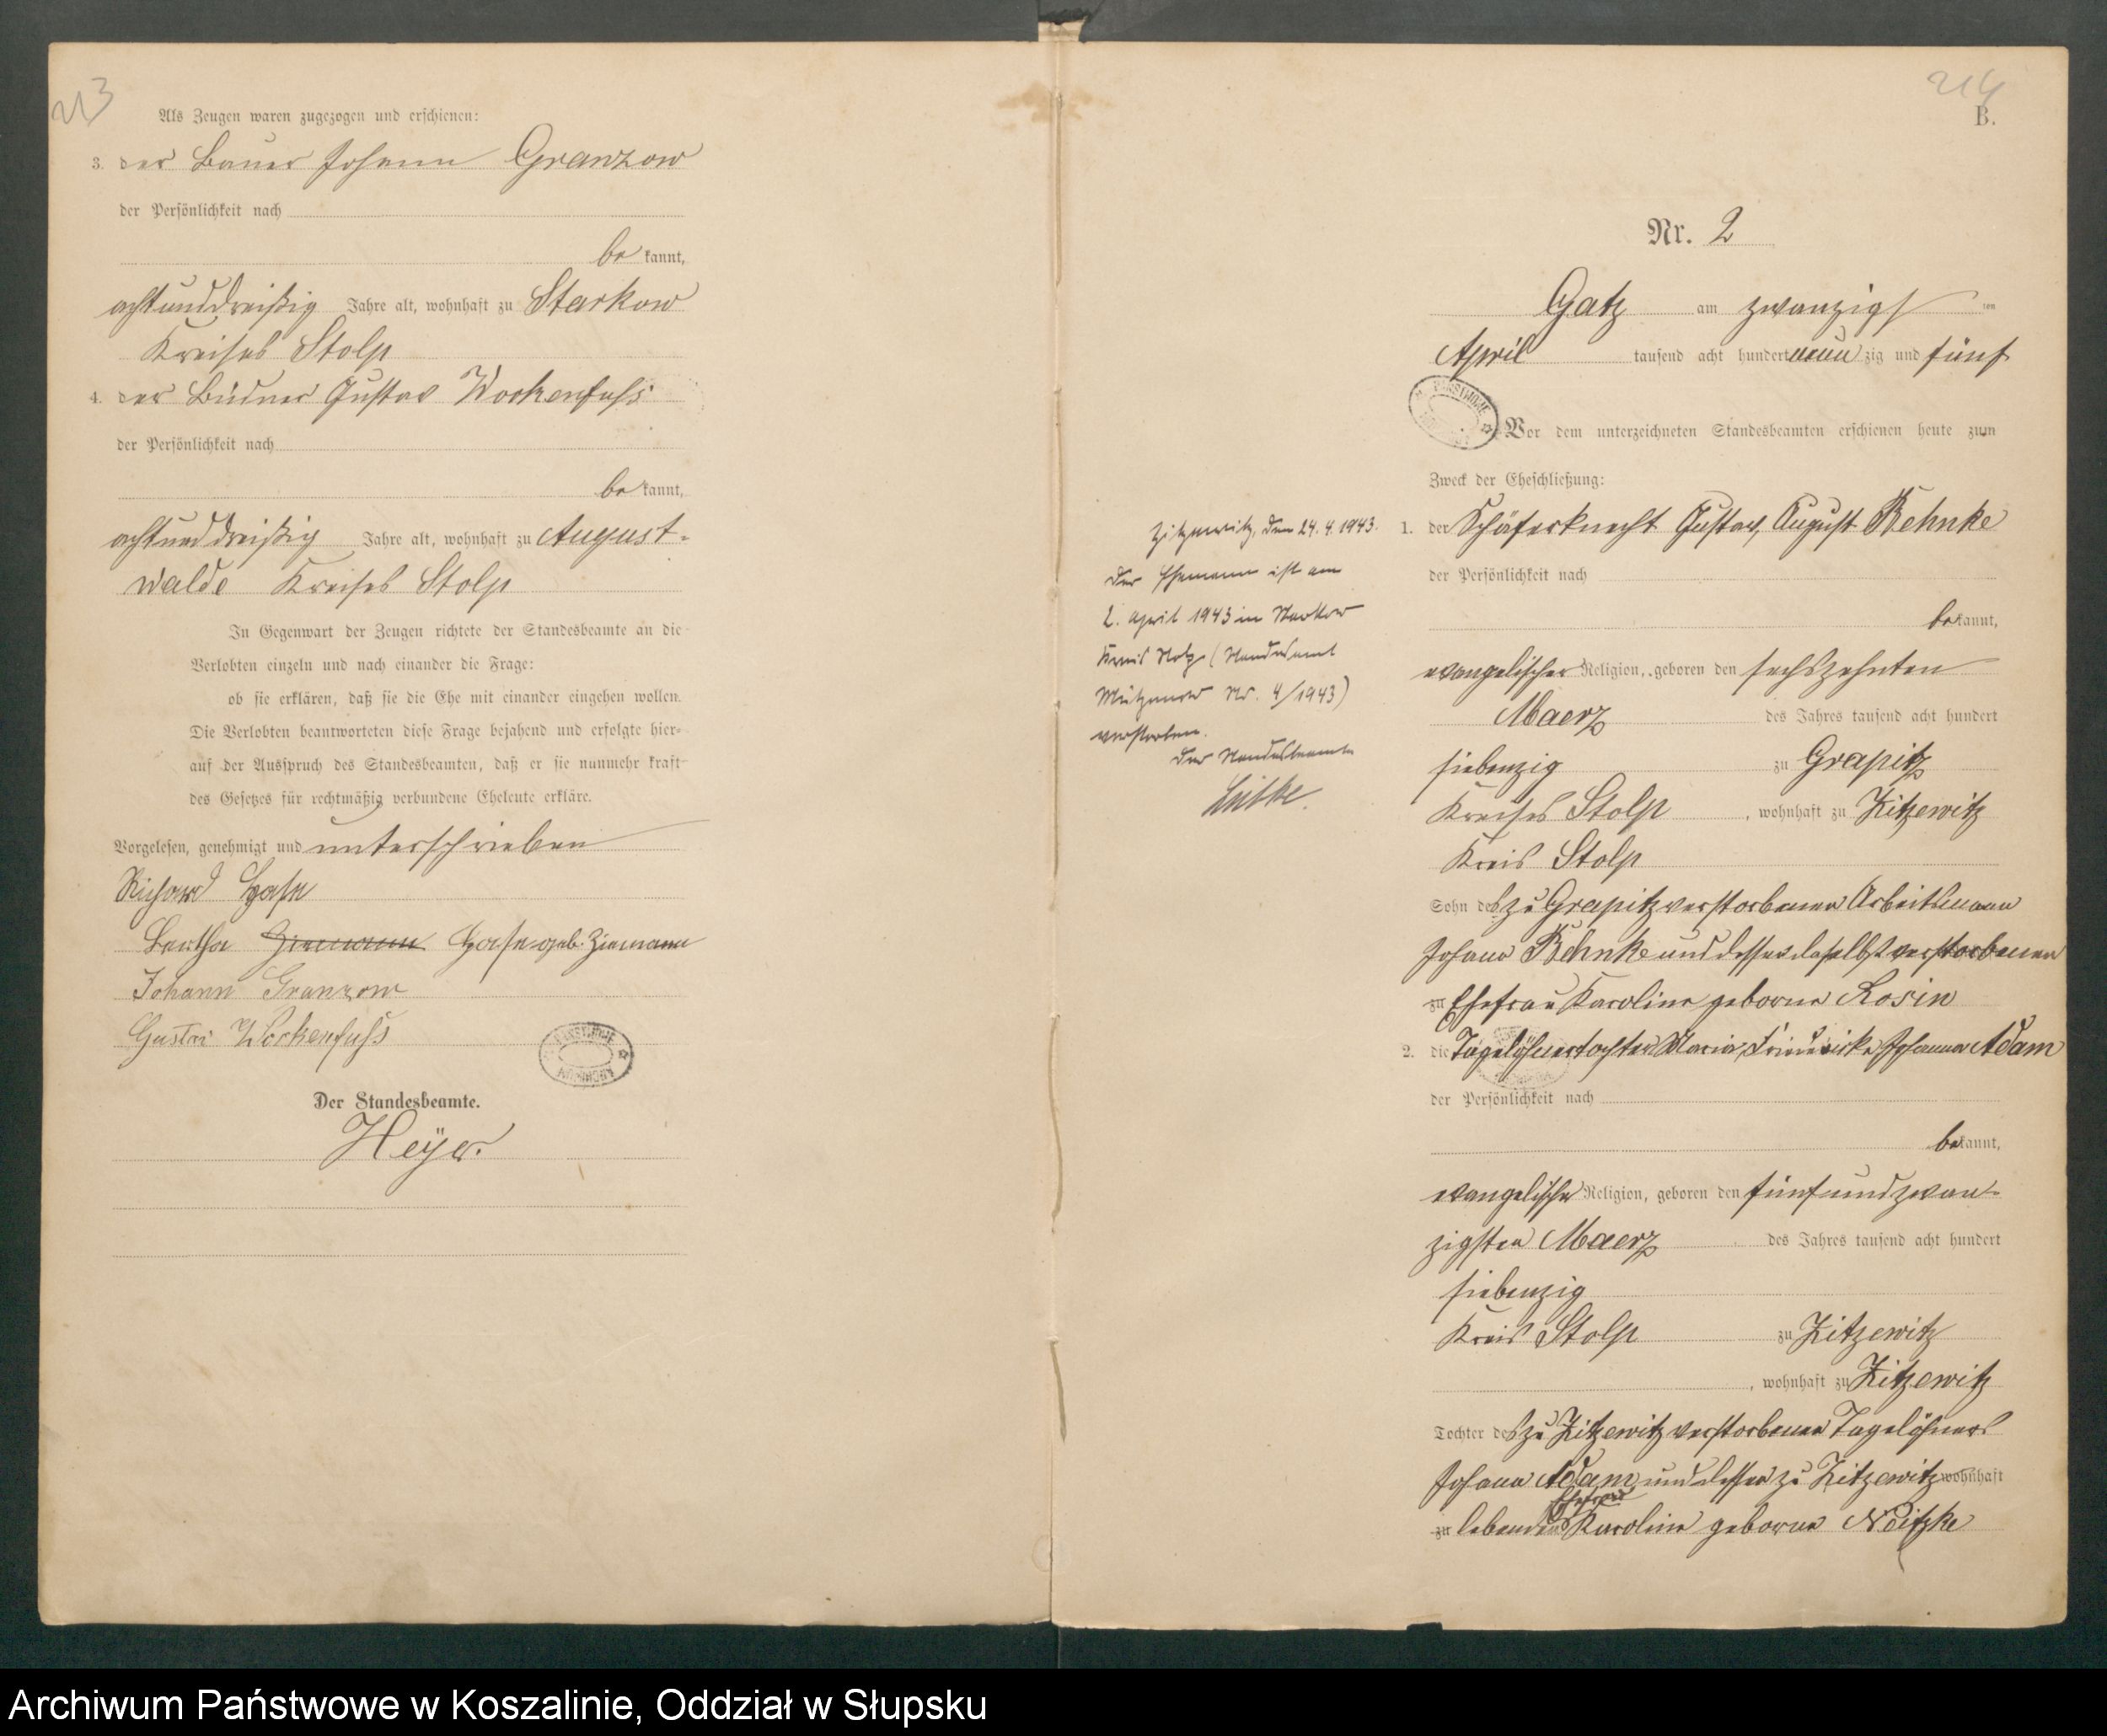 213
Als Zeugen waren zugezogen und erschienen:
3. der Bauer Johann Granzow
der Persönlichkeit nach
be kannt,
achtunddreißig Jahre alt, wohnhaft zu Starkow
Kreises Stolp
4. der Büdner Gustav Wockenfuss
der Persönlichkeit nach
be kannt,
achtunddreißig Jahre alt, wohnhaft zu August-
walde Kreises Stolp
In Gegenwart der Zeugen richtete der Standesbeamte an die
Verlobten einzeln und nach einander die Frage:
ob sie erklären, daß sie die Ehe mit einander eingehen wollen.
Die Verlobten beantworteten diese Frage bejahend und erfolgte hier-
auf der Ausspruch des Standesbeamten, daß er sie nunmehr kraft
des Gesetzes für rechtmäßig verbundene Eheleute erkläre.
Vorgelesen, genehmigt und unterschrieben
Richard Hase
Bertha Ziemann Hase geb. Ziemann
Johann Granzow
Gustav Wockenfuss
Der Standesbeamte.
Heyer.
214
B.
Nr. 2
Gatz am zwanzigsten
April tausend acht hundert neun zig und fünf
Vor dem unterzeichneten Standesbeamten erschienen heute zum
Zweck der Eheschließung:
1. der Schäferknecht Gustav, August Behnke
der Persönlichkeit nach
bekannt,
evangelischer Religion, geboren den sechszehnten
Maerz des Jahres tausend acht hundert
siebenzig zu Grapitz
Kreises Stolp, wohnhaft zu Zitzewitz
Kreis Stolp
Sohn des zu Grapitz verstorbenen Arbeitsmann
Johann Behnke und dessen daselbst verstorbenen
zu Ehefrau Karoline geborne Rosin
2. die Tagelöhnertochter Maria, Friederike Johanna Adam
der Persönlichkeit nach
bekannt,
evangelischer Religion, geboren den fünfundzwan-
zigsten Maerz des Jahres tausend acht hundert
siebenzig
Kreis Stolp zu Zitzewitz
, wohnhaft zu Zitzewitz
Tochter des zu Zitzewitz verstorbenen Tagelöhners
Johann Adam und dessen zu Zitzewitz wohnhaft
zu lebenden Ehefrau Karoline geborne Neitzke
Zitzewitz, den 24. 4. 1943.
Der Ehemann ist am
2. April 1943 in Starkow
Kreis Stolp (Standesamt
Mützenow Nr. 4/1943)
verstorben.
Der Standesbeamte
Lüdke.
Archiwum Państwowe w Koszalinie, Oddział w Słupsku